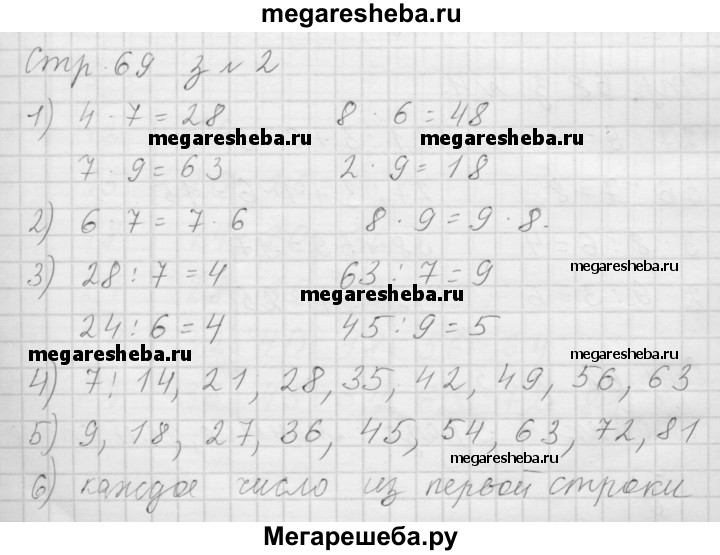 megaresheba.ru
Стр. 69 з № 2
1) 4 · 7 = 28 8 · 6 = 48
megaresheba.ru megaresheba.ru
7 · 9 = 63 2 · 9 = 18
2) 6 · 7 = 7 · 6 8 · 9 = 9 · 8.
3) 28 : 7 = 4 63 : 7 = 9 megaresheba.ru
megaresheba.ru
24 : 6 = 4 45 : 9 = 5
megaresheba.ru megaresheba.ru
4) 7! 14, 21, 28, 35, 42, 49, 56, 63
5) 9, 18, 27, 36, 45, 54, 63, 72, 81
megaresheba.ru
6) каждое число из первой строки
Мегарешеба.ру